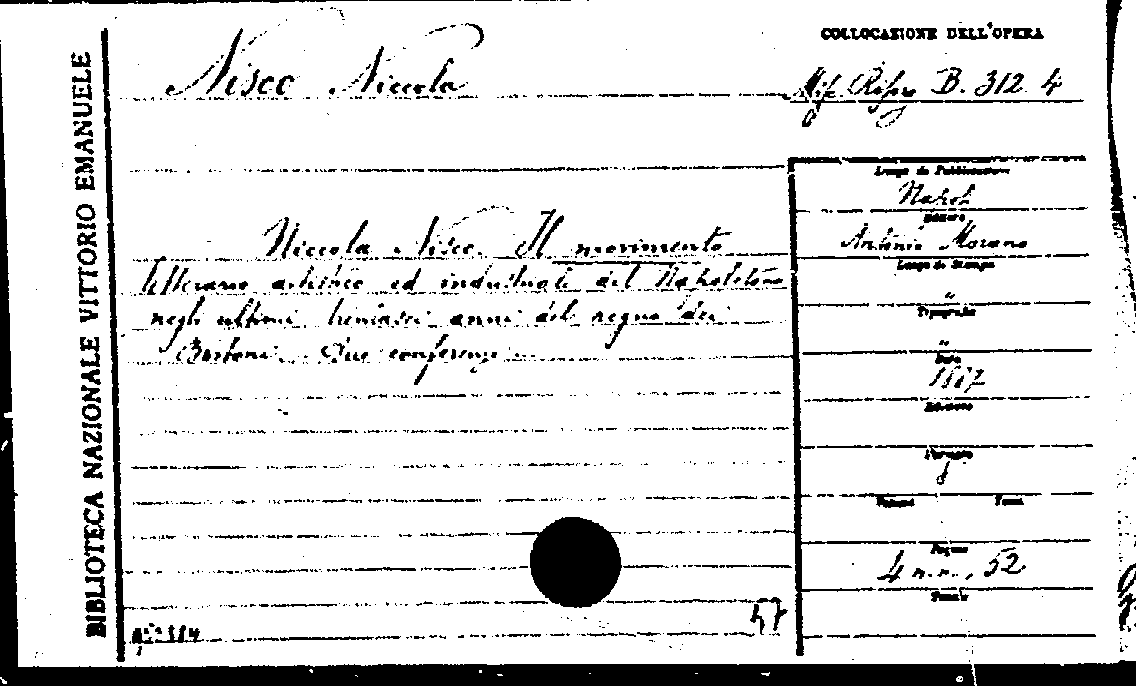 BIBLIOTECA NAZIONALE VITTORIO EMANUELE
Nisco Niccola
COLLOCAZIONE DELL'OPERA
B. 312 4
Niccola Nisco. Il movimento
letterario artistico ed industriale del Napoletano
negli ultimi trentasei anni del regno dei
Borboni. Due conferenze.
Luogo di Pubblicazione
Napoli
Editore
Antonio Morano
Luogo di Stampa
"
Tipografia
"
Data
1887
Edizione
Formato
8
Volumi Tomi
Pagine
4 n.n., 52
Tavole
57